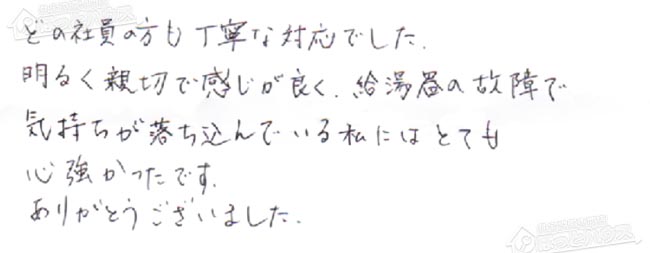 どの社員の方も丁寧な対応でした.
明るく親切で感じが良く、給湯器の故障で
気持ちが落ち込んでいる私にはとても
心強かったです.
ありがとうございました.